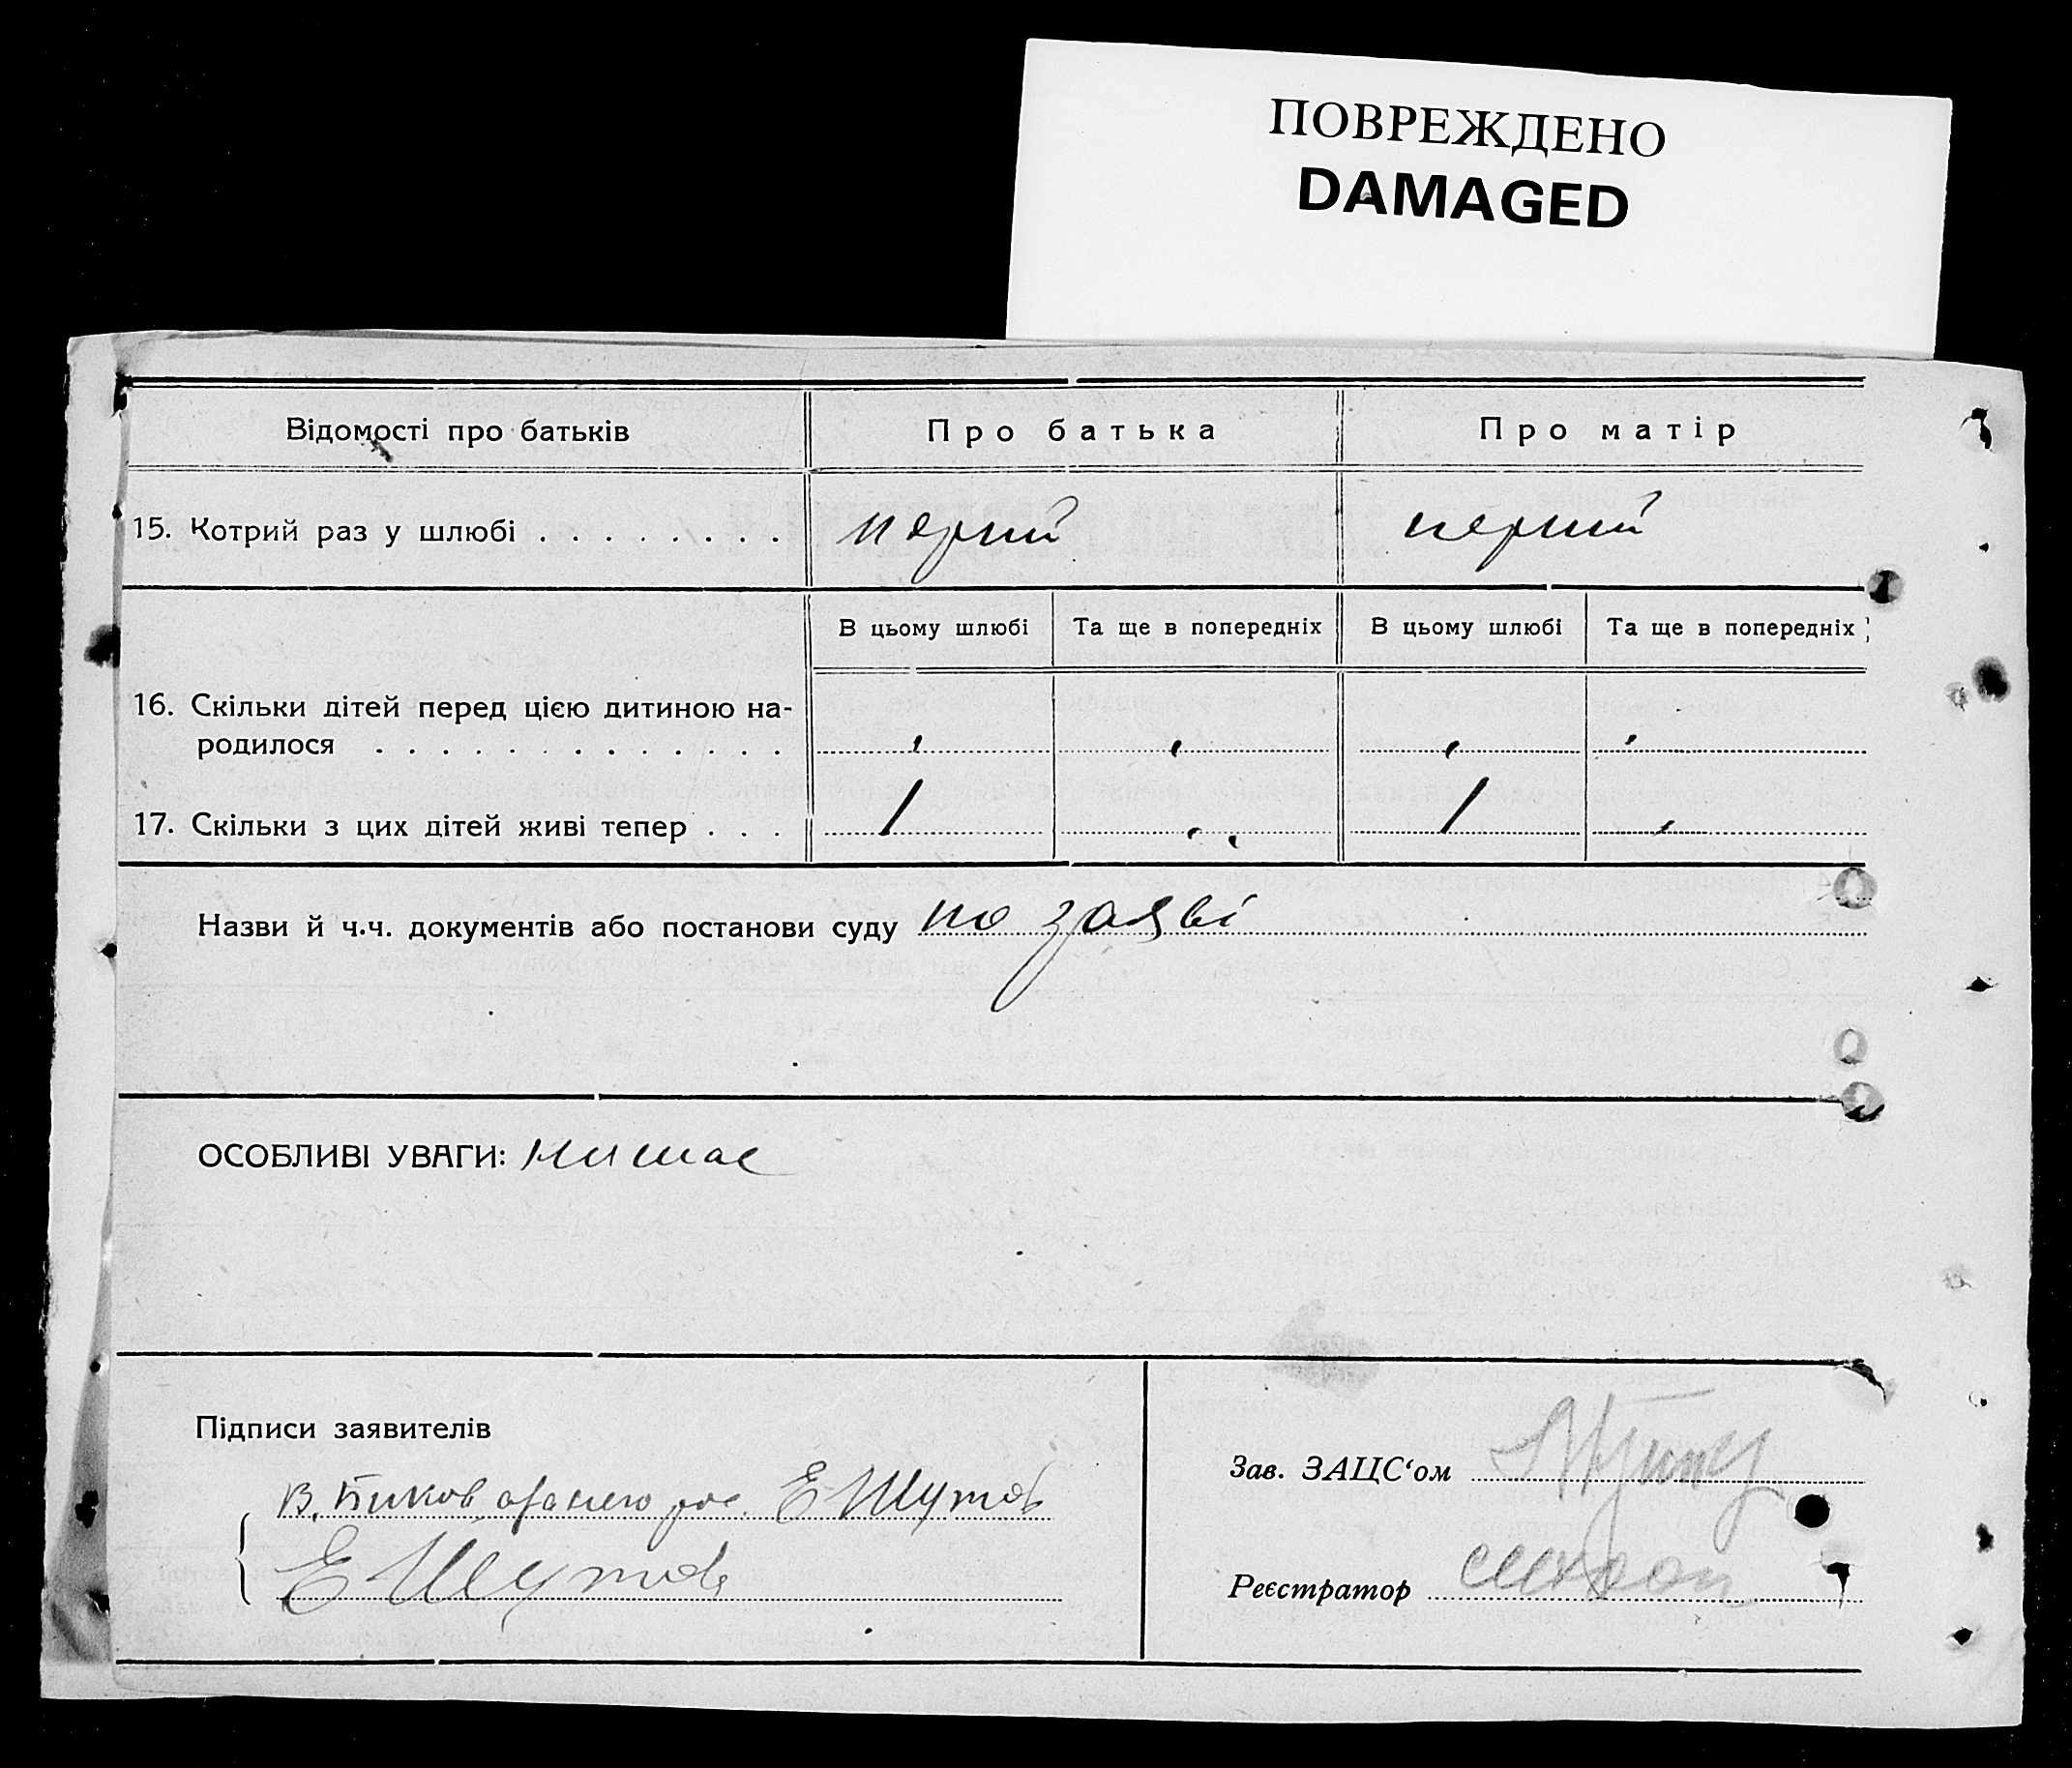 ПОВРЕЖДЕНО
DAMAGED
Відомості про батьків
Про батька
Про матір
15. Котрий раз у шлюбі . . . . . . . .
перший
перший
В цьому шлюбі
Та ще в попередніх
В цьому шлюбі
Та ще в попередніх
16. Скільки дітей перед цією дитиною на-
родилося . . . . . . . . . . . . .
17. Скільки з цих дітей живі тепер . . .
1
1
Назви й ч.ч. документів або постанови суду по заяві
ОСОБЛИВІ УВАГИ: немає
Підписи заявителів
В. Биков Е Шутов
Е Шутов
Зав. ЗАЦС‘ом
Реєстратор